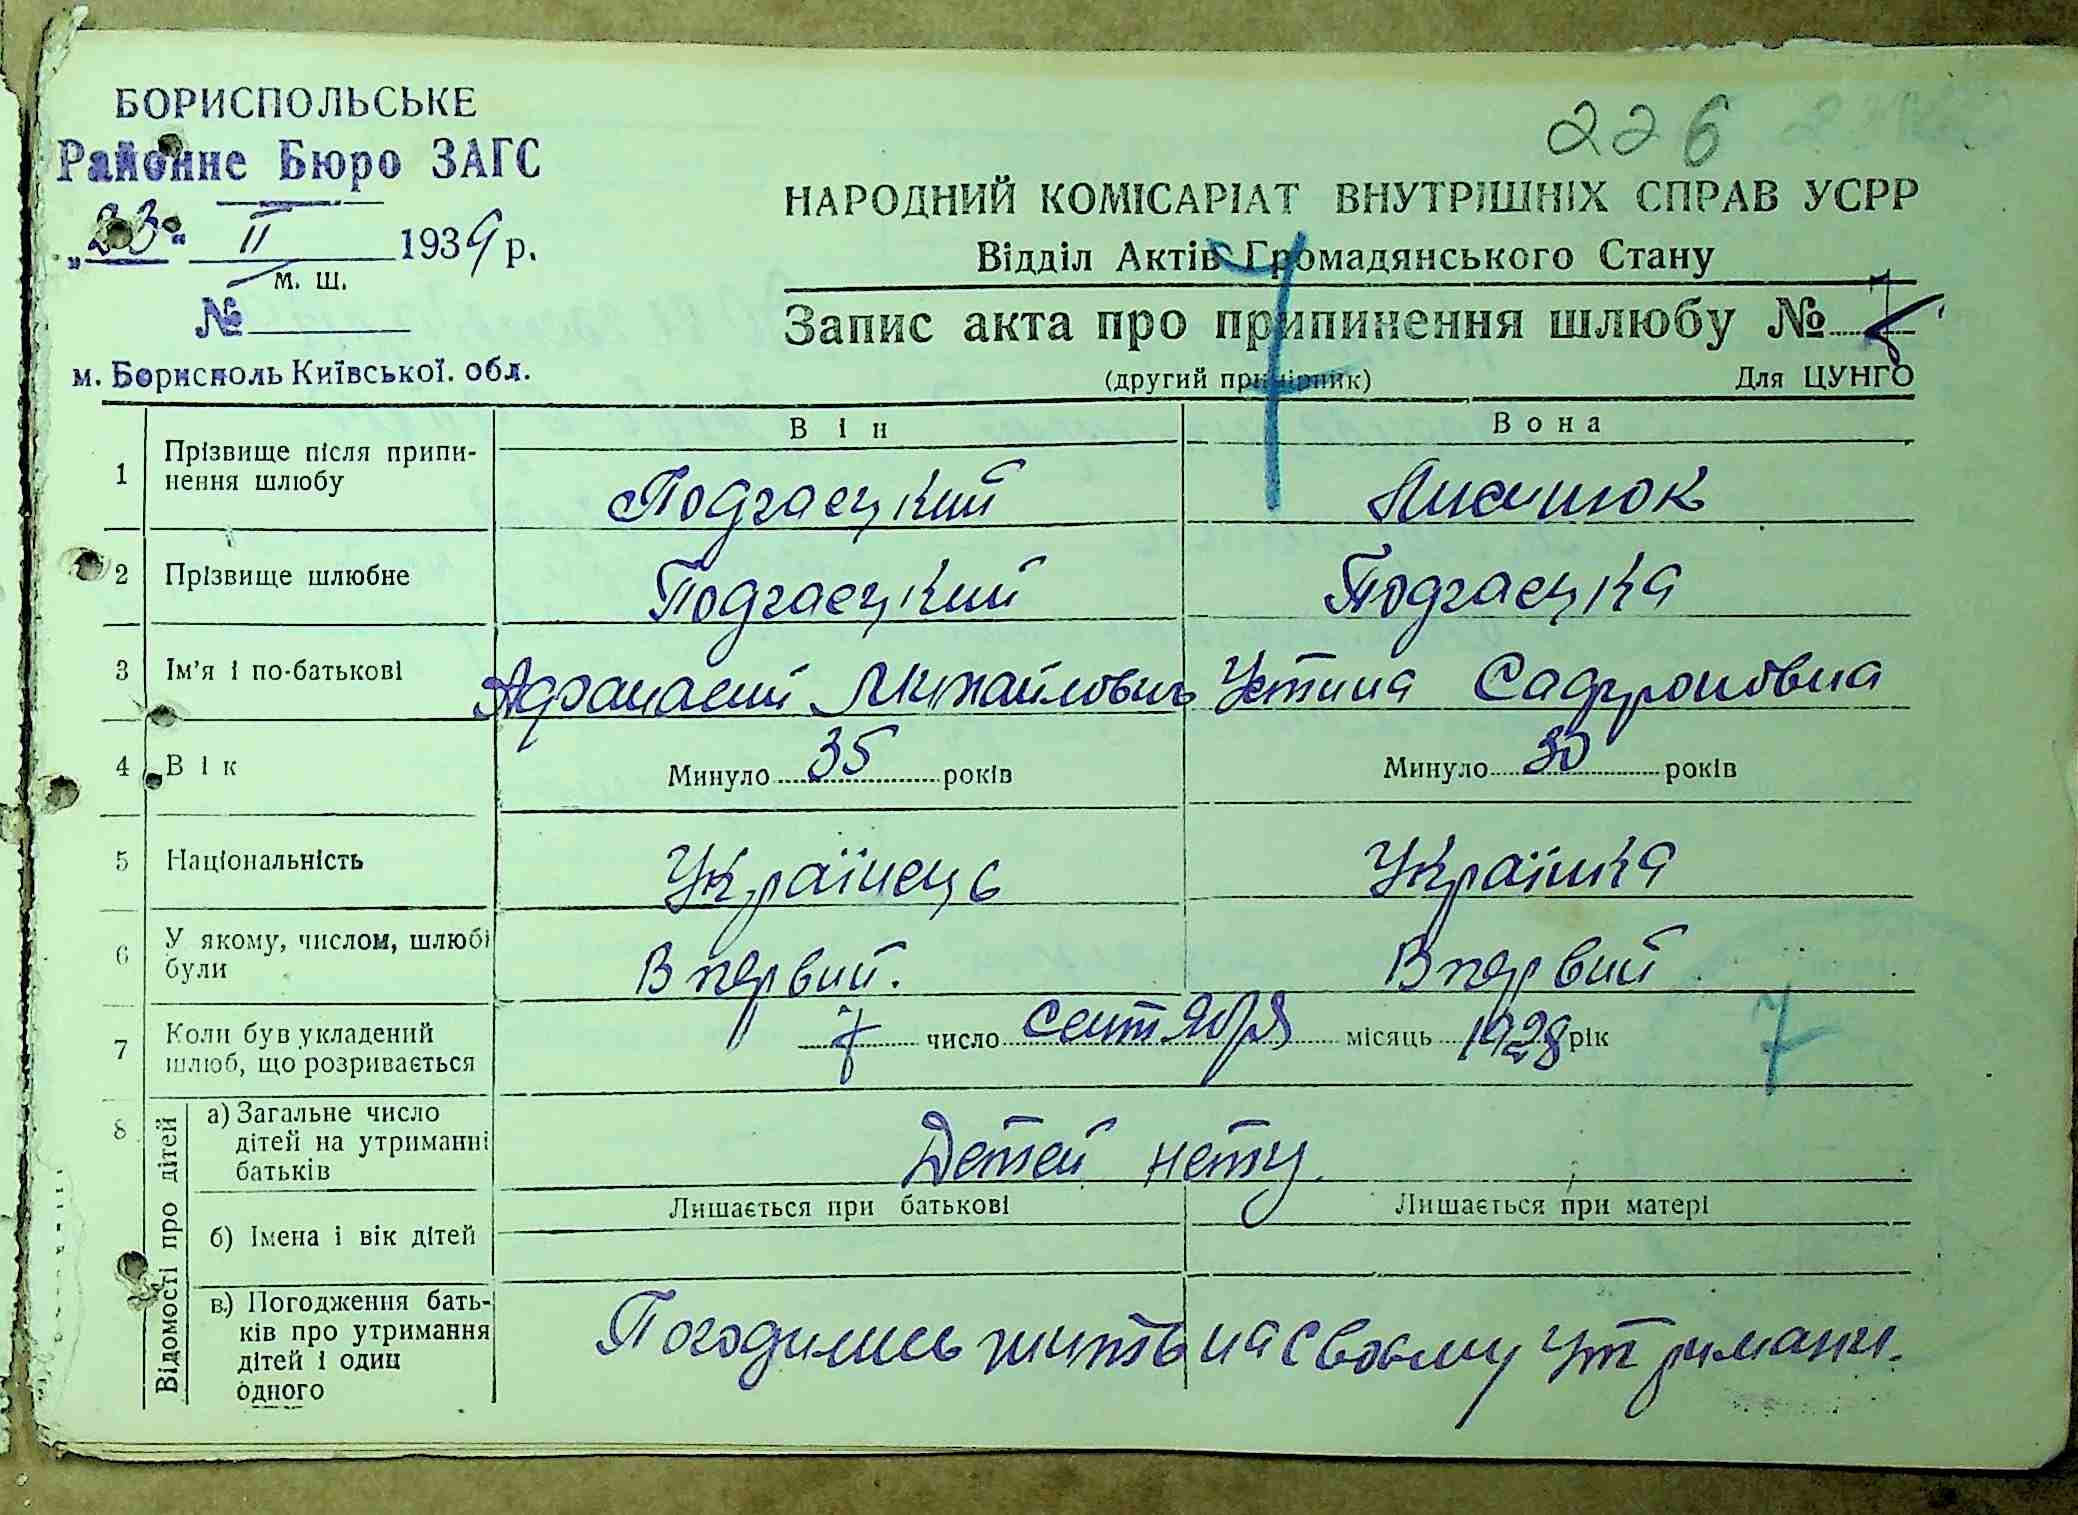 226
БОРИСПОЛЬСЬКЕ
Районне Бюро ЗАГС
„23“ II 1939 р.
м. ш.
№
м. Борисполь Київської. обл.
НАРОДНИЙ КОМІСАРІАТ ВНУТРІШНІХ СПРАВ УСРР
Відділ Актів Громадянського Стану
Запис акта про припинення шлюбу №
7
(другий примірник) Для ЦУНГО
Він Вона
1 Прізвище після припи-
нення шлюбу Подгаєцкий
2 Прізвище шлюбне Подгаєцкий Подгаєцка
3 Ім'я і по-батькові Афанасий Михайлович Устина Сафроновна
4 Вік Минуло 35 років Минуло 30 років
5 Національність Українець Українка
6 У якому, числом, шлюбі
були Впервий. Впервий
7 Коли був укладений
шлюб, що розривається 7 число сентября місяць 1928 рік 7
8 Відомості про дітей
а) Загальне число
дітей на утриманні
батьків Детей нету.
Лишається при батькові Лишається при матері
б) Імена і вік дітей
в) Погодження бать-
ків про утримання
дітей і один
одного Погодились жить на своєму утримани.